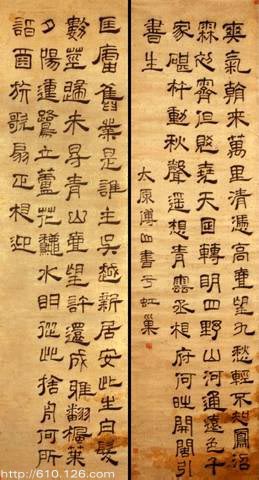 爽氣朝來萬里清憑高壹望九愁輕不知鳳沼
霖初霽但覺堯天日轉明四野山河通遠色千
家碪杵動秋聲遙想青雲丞相府何時開閤引
書生
太原傅山書于虹巢
匡廬舊業是誰主吳越新居安此生白髮
數莖歸未得青山壹望計還成鴉翻楓葉
夕陽動鷺立蘆花秋水明從此捨舟何所
詣酒旂歌扇正相迎
http://610.126.com/